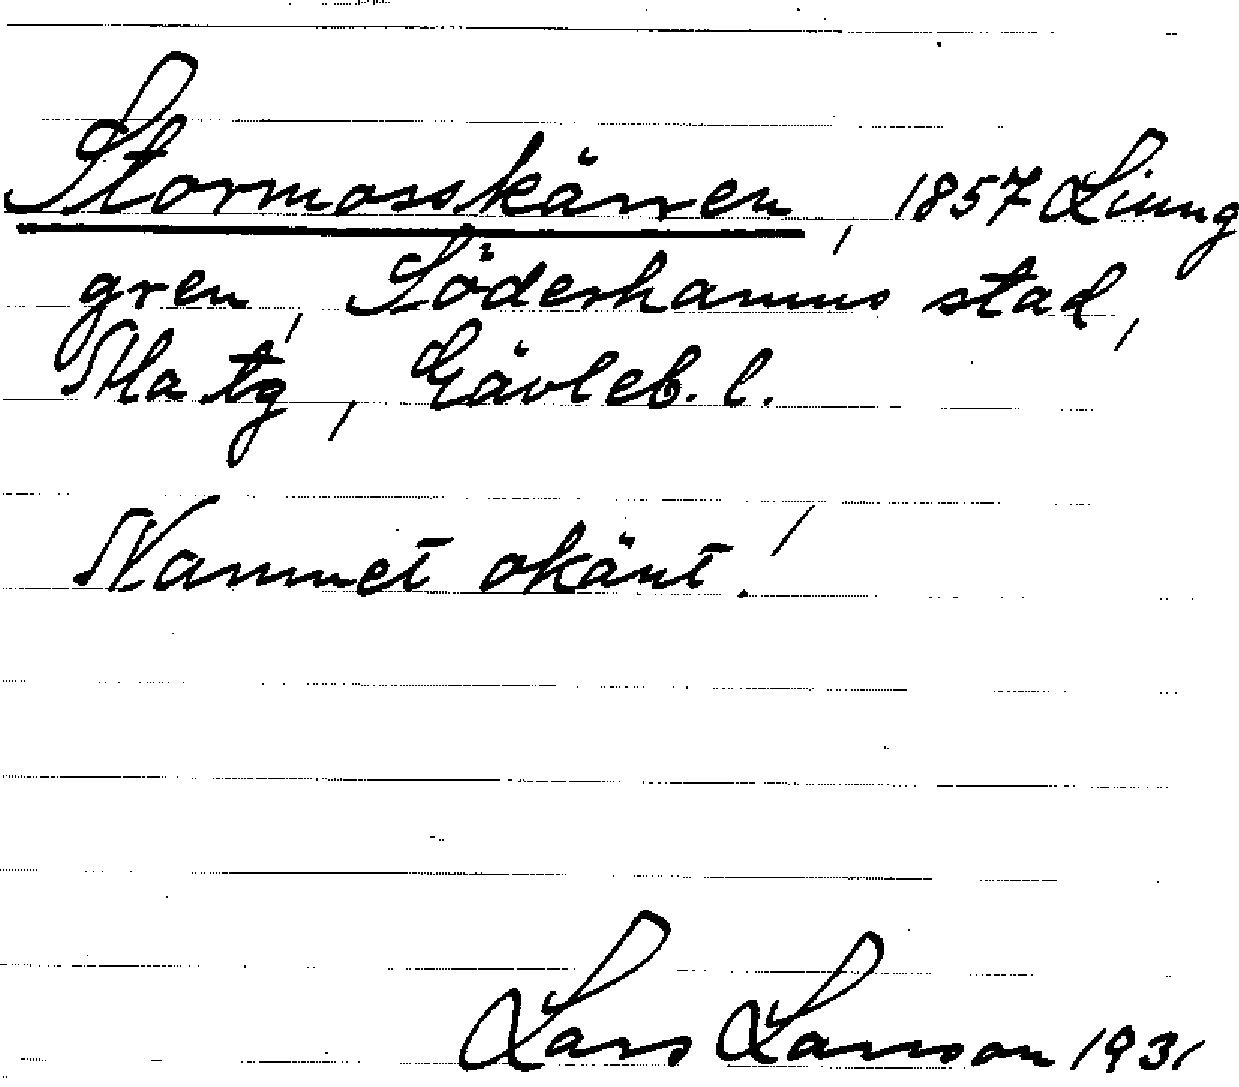 Stormosskärren, 1857 Ljung
gren, Söderhamns stad,
Ma tg, Gävleb. l.
Namnet okänt!
Lars Larsson 1931